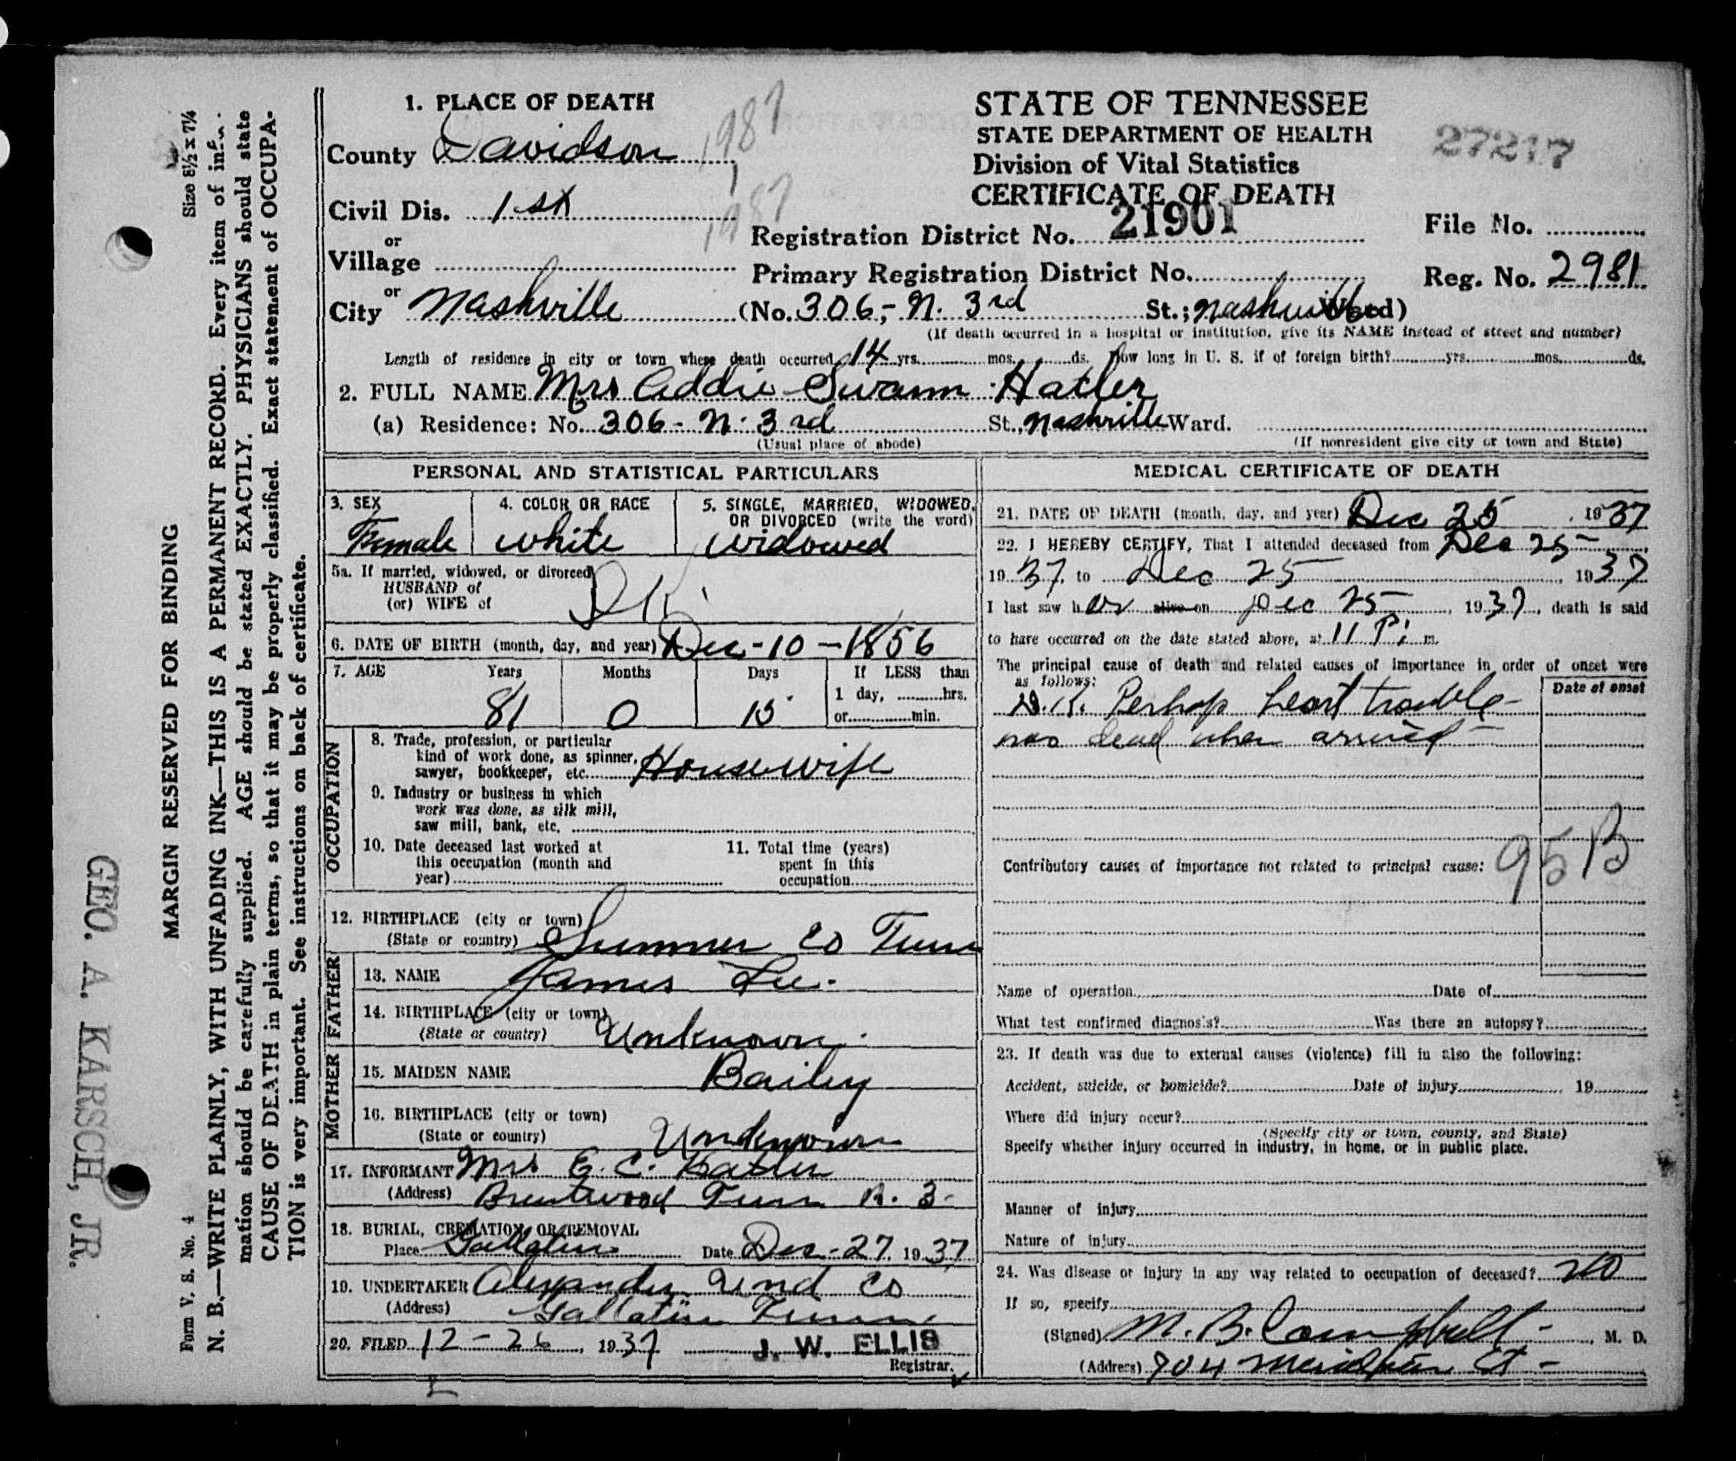 1. PLACE OF DEATH
County Davidson
Civil Dis. 1st
or
Village
or
City Nashville (No. 306, N. 3rd St.; Nashville Ward)
1987
1987
STATE OF TENNESSEE
STATE DEPARTMENT OF HEALTH
Division of Vital Statistics
CERTIFICATE OF DEATH
27217
Registration District No. 21901
File No.
Primary Registration District No.
Reg. No. 2981
(If death occurred in a hospital or institution, give its NAME instead of street and number)
Length of residence in city or town where death occurred 14 yrs. mos. ds. How long in U. S. if of foreign birth? yrs. mos. ds.
2. FULL NAME Mrs Addie Swann Hatler
(a) Residence: No. 306 - N. 3rd St., Nashville Ward.
(Usual place of abode) (If nonresident give city or town and State)
PERSONAL AND STATISTICAL PARTICULARS
3. SEX
Female
4. COLOR OR RACE
White
5. SINGLE, MARRIED, WIDOWED, OR DIVORCED (write the word)
Widowed
5a. If married, widowed, or divorced
HUSBAND of
(or) WIFE of D K.
6. DATE OF BIRTH (month, day, and year) Dec - 10 - 1856
7. AGE Years Months Days If LESS than
1 day, hrs.
or min.
81 0 15
OCCUPATION
8. Trade, profession, or particular
kind of work done, as spinner,
sawyer, bookkeeper, etc. Housewife
9. Industry or business in which
work was done, as silk mill,
saw mill, bank, etc.
10. Date deceased last worked at
this occupation (month and
year)
11. Total time (years)
spent in this
occupation
12. BIRTHPLACE (city or town)
(State or country) Sumner Co Tenn
FATHER
13. NAME James Lee.
14. BIRTHPLACE (city or town)
(State or country) Unknown.
MOTHER
15. MAIDEN NAME Bailey
16. BIRTHPLACE (city or town)
(State or country) Unknown
17. INFORMANT Mrs E. C. Hatler
(Address) Brentwood Tenn R. 3 -
18. BURIAL, CREMATION, OR REMOVAL
Place Gallatin Date Dec - 27, 1937
19. UNDERTAKER Alexander Und Co
(Address) Gallatin Tenn.
20. FILED 12 - 26, 1937 J. W. ELLIS
Registrar.
MEDICAL CERTIFICATE OF DEATH
21. DATE OF DEATH (month, day, and year) Dec 25, 1937
22. I HEREBY CERTIFY, That I attended deceased from Dec 25 -
1937 to Dec 25, 1937
I last saw her alive on Dec 25 -, 1937, death is said
to have occurred on the date stated above, at 11 P. m.
The principal cause of death and related causes of importance in order of onset were
as follows:
Date of onset
D. K. Perhap heart trouble -
was dead when arrived -
95B
Contributory causes of importance not related to principal cause:
Name of operation Date of
What test confirmed diagnosis? Was there an autopsy?
23. If death was due to external causes (violence) fill in also the following:
Accident, suicide, or homicide? Date of injury 19
Where did injury occur?
(Specify city or town, county, and State)
Specify whether injury occurred in industry, in home, or in public place.
Manner of injury
Nature of injury
24. Was disease or injury in any way related to occupation of deceased? no
If so, specify
(Signed) M. B. Campbell -, M. D.
(Address) 704 Meridian St -
Size 8½ x 7¼
MARGIN RESERVED FOR BINDING
Form V. S. No. 4
N. B.—WRITE PLAINLY, WITH UNFADING INK—THIS IS A PERMANENT RECORD. Every item of infor-
mation should be carefully supplied. AGE should be stated EXACTLY. PHYSICIANS should state
CAUSE OF DEATH in plain terms, so that it may be properly classified. Exact statement of OCCUPA-
TION is very important. See instructions on back of certificate.
GEO. A. KARSCH, JR.